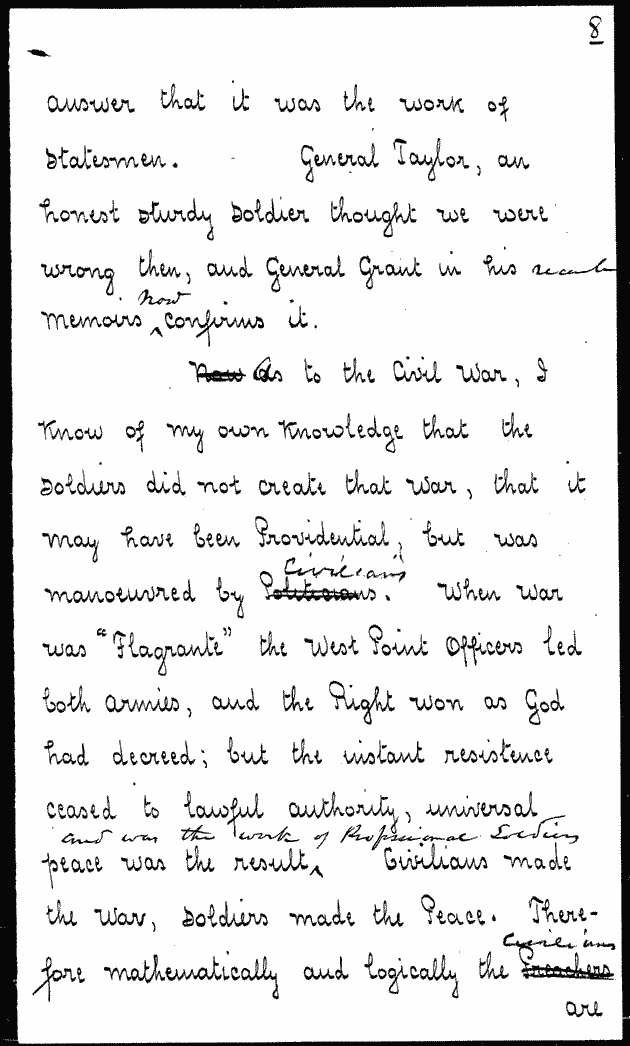 8
answer that it was the work of
Statesmen. General Taylor, an
honest sturdy Soldier thought we were
wrong then, and General Grant in his recent
now
Memoirs ^ confirms it.
Now As to the Civil War, I
Know of my own Knowledge that the
Soldiers did not create that War, that it
may have been Providential, but was
Civilians
manoeuvred by Politicians. When War
was "Flagrante" the West Point Officers led
both Armies, and the Right won as God
had decreed; but the instant resistence
ceased to lawful authority, universal
and was the work of Professional Soldiers
peace was the result ^ Civilians made
the War, Soldiers made the Peace. There-
Civilians
fore mathematically and logically the Preachers
are